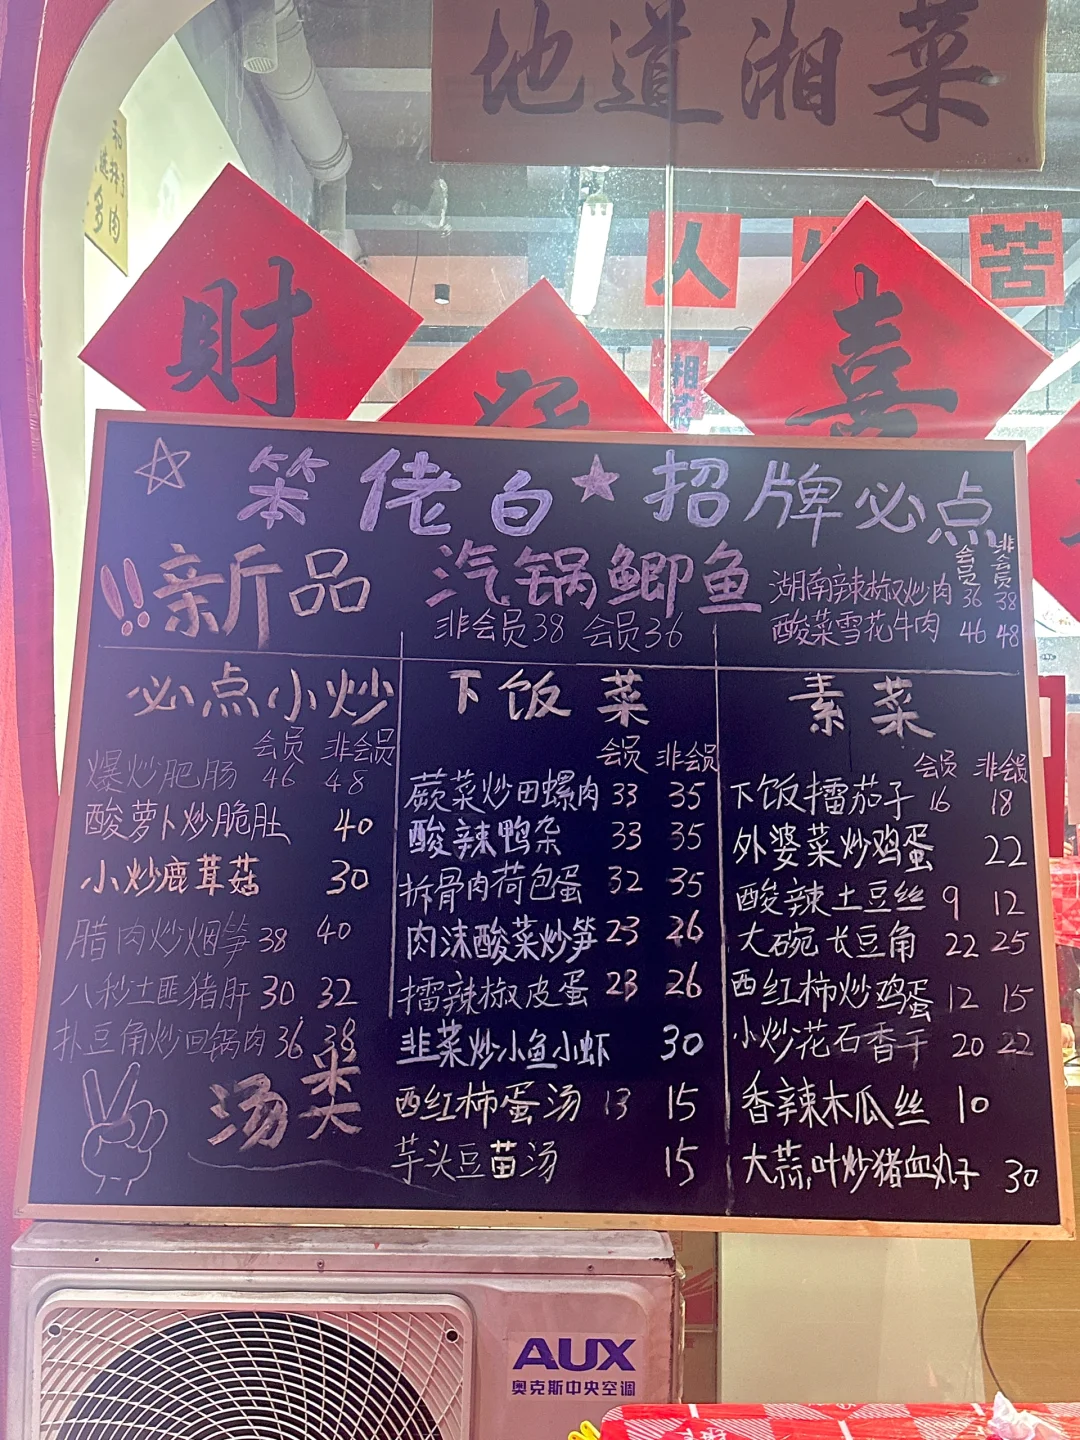 地道湘菜
多肉
财
喜
人
苦
笨佬白★招牌必点
!!新品 汽锅鲫鱼
非会员38 会员36
会员 非会员
湖南辣椒炒肉 36 38
酸菜雪花牛肉 46 48
必点小炒
会员 非会员
爆炒肥肠 46 48
酸萝卜炒脆肚 40
小炒鹿茸菇 30
腊肉炒烟笋 38 40
八秒土匪猪肝 30 32
扑豆角炒回锅肉 36 38
汤菜
下饭菜
会员 非会员
蕨菜炒田螺肉 33 35
酸辣鸭杂 33 35
拆骨肉荷包蛋 32 35
肉沫酸菜炒笋 23 26
擂辣椒皮蛋 23 26
韭菜炒小鱼小虾 30
西红柿蛋汤 13 15
芋头豆苗汤 15
素菜
会员 非会员
下饭擂茄子 16 18
外婆菜炒鸡蛋 22
酸辣土豆丝 9 12
大碗长豆角 22 25
西红柿炒鸡蛋 12 15
小炒花石香干 20 22
香辣木瓜丝 10
大蒜叶炒猪血丸子 30
AUX
奥克斯中央空调